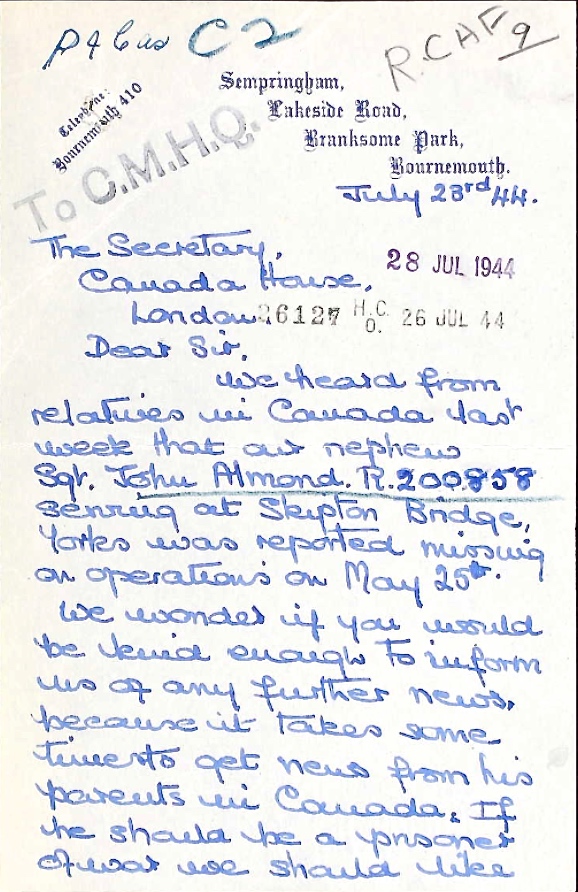 C2
R.CAF 9
Sempringham,
Telephone:
Bournemouth 410
Lakeside Road,
Branksome Park,
Bournemouth.
To C.M.H.Q.
July 23rd 44.
The Secretary,
28 JUL 1944
Canada House,
London 26127 H.C.O. 26 JUL 44
Dear Sir,
We heard from
relatives in Canada last
week that our nephew
Sgt. John Almond. R.200858
serving at Skipton Bridge,
Yorks was reported missing
on operations on May 25th.
We wonder if you would
be kind enough to inform
us of any further news,
because it takes some
time to get news from his
parents in Canada. If
he should be a prisoner
of war we should like